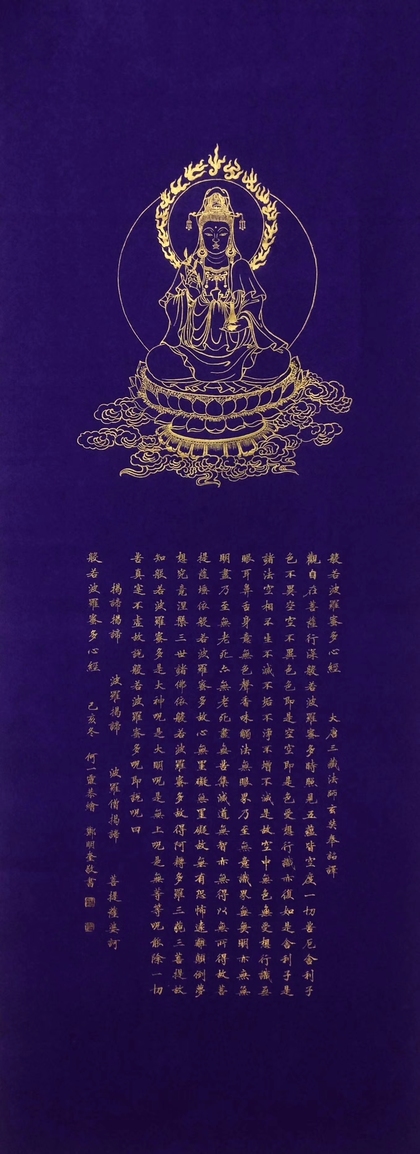 般若波羅蜜多心經 大唐三藏法師玄奘奉詔譯
觀自在菩薩行深般若波羅蜜多時照見五蘊皆空度一切苦厄舍利子
色不異空空不異色色即是空空即是色受想行識亦復如是舍利子是
諸法空相不生不滅不垢不淨不增不減是故空中無色無受想行識無
眼耳鼻舌身意無色聲香味觸法無眼界乃至無意識界無無明亦無無
明盡乃至無老死亦無老死盡無苦集滅道無智亦無得以無所得故菩
提薩埵依般若波羅蜜多故心無罣礙無罣礙故無有恐怖遠離顛倒夢
想究竟涅槃三世諸佛依般若波羅蜜多故得阿耨多羅三藐三菩提故
知般若波羅蜜多是大神呪是大明呪是無上呪是無等等呪能除一切
苦真實不虛故說般若波羅蜜多呪即說呪曰
揭諦揭諦 波羅揭諦 波羅僧揭諦 菩提薩婆訶
般若波羅蜜多心經 己亥冬 何一靈恭繪 鄭明奎敬書